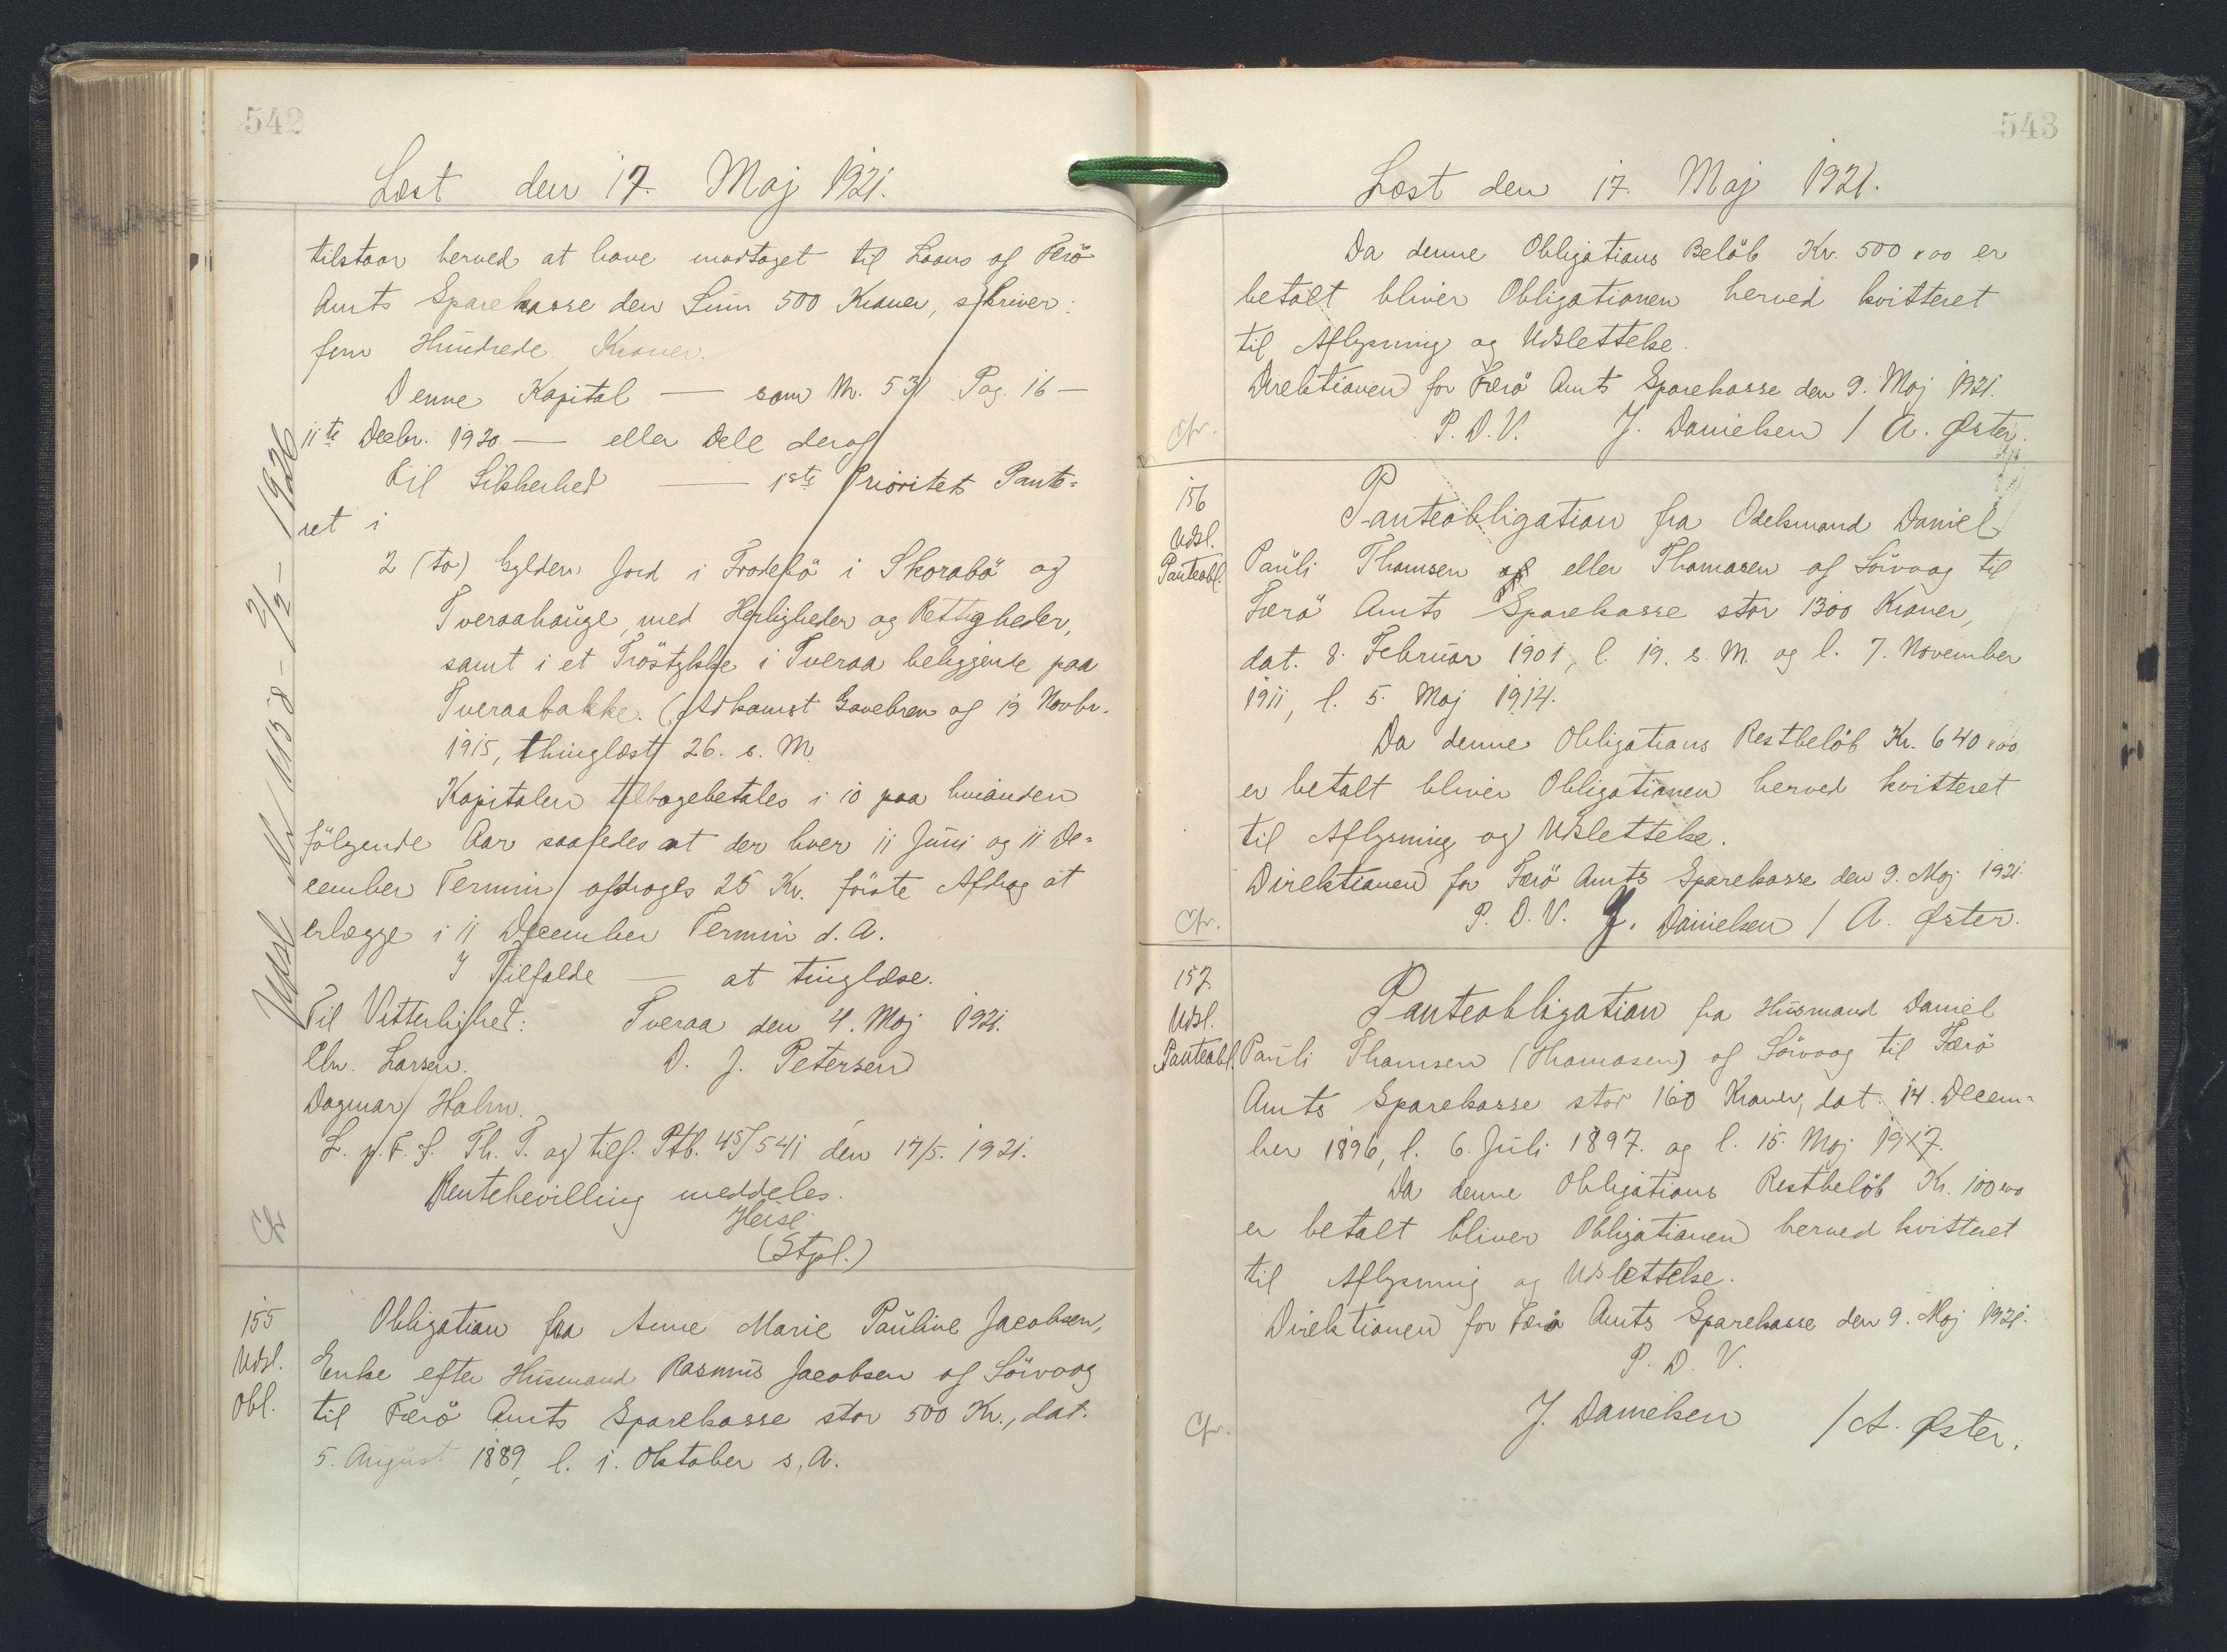 542
Læst den 17. Maj 1921.
tilstaar herved at have modtaget til Laans af Færö
Amts Sparekasse den Sum 500 Kroner, skriver:
fem Hundrede Kroner.
Denne Kapital — som Nr. 531 Pag. 16 —
11te Decbr. 1920 — eller Dele deraf
Til Sikkerhed — 1ste Prioritets Pante-
ret i
2 (to) Gylden Jord i Frodebö i Skorabö og
Tveraahauge, med Herligheder og Rettigheder,
samt i et Tröstykke i Tveraa beliggende paa
Tveraabakke. (Adkomst Gavebrev af 19 Novbr.
1915, thinglæst 26. s. M.
Kapitalen tilbagebetales i 10 paa hinanden
fölgende Aar saaledes at der hver 11 Juni og 11 De-
cember Termin afdrages 25 Kr. förste Afdrag at
erlægge i 11 December Termin d. A.
I Tilfælde — at tinglæse.
Til Vitterlighed: Tveraa den 4. Maj 1921.
Chr. Larsen. D. J. Petersen
Dagmar Holm.
L. p. F. S. Th. T. og tilf. Ptb. 45/541 den 17/5. 1921.
Rentebevilling meddeles.
Heise
(Stpl.)
Cfr
Udsl Nr 1138 - 2/2 - 1926
155
Udsl.
Obl.
Obligation fra Anne Marie Pauline Jacobsen,
Enke efter Husmand Rasmus Jacobsen af Sörvaag
til Færö Amts Sparekasse stor 500 Kr., dat.
5. August 1889, l. 1. Oktober s. A.
543
Læst den 17. Maj 1921.
Da denne Obligations Belöb Kr. 500 x 00 er
betalt bliver Obligationen herved kvitteret
til Aflysning og Udslettelse.
Direktionen for Færö Amts Sparekasse den 9. Maj 1921.
Cfr. P. D. V. J. Danielsen / A. Øster.
156
Udsl.
Panteobl.
Panteobligation fra Odelsmand Daniel
Pauli Thomsen af eller Thomasen af Sörvaag til
Færö Amts Sparekasse stor 1300 Kroner,
dat. 8. Februar 1901, l. 19. s. M. og l. 7. November
1911, l. 5. Maj 1914.
Da denne Obligations Restbelöb Kr. 640 x 00
er betalt bliver Obligationen herved kvitteret
til Aflysning og Udslettelse.
Direktionen for Færö Amts Sparekasse den 9. Maj 1921.
Cfr. P. D. V. J. Danielsen / A. Øster.
157.
Udsl.
Panteobl.
Panteobligation fra Husmand Daniel
Pauli Thomsen (Thomasen) af Sörvaag til Færö
Amts Sparekasse stor 160 Kroner, dat. 14. Decem-
ber 1896, l. 6. Juli 1897. og l. 15. Maj 1917.
Da denne Obligations Restbelöb Kr. 100 x 00
er betalt bliver Obligationen herved kvitteret
til Aflysning og Udslettelse.
Direktionen for Færö Amts Sparekasse den 9. Maj 1921.
P. D. V.
Cfr. J. Danielsen / A. Øster.